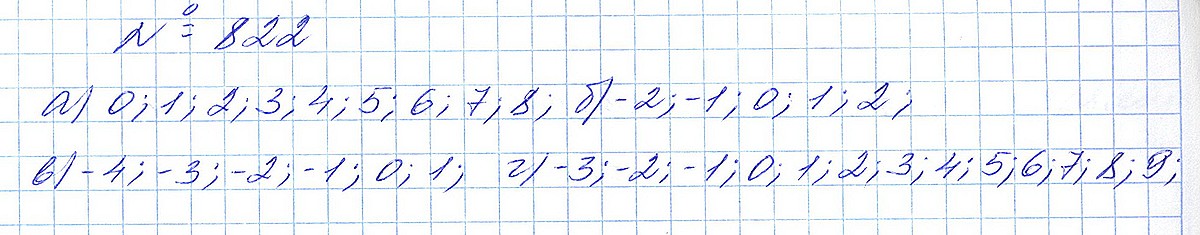 № 822
а) 0; 1; 2; 3; 4; 5; 6; 7; 8; б) -2; -1; 0; 1; 2;
в) -4; -3; -2; -1; 0; 1; г) -3; -2; -1; 0; 1; 2; 3; 4; 5; 6; 7; 8; 9;